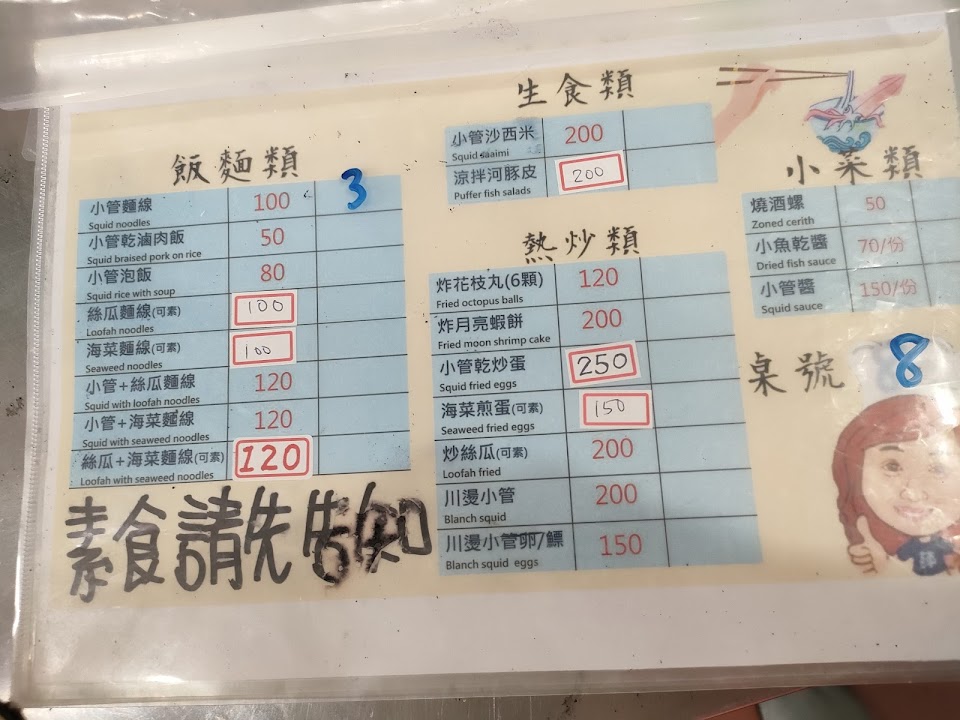 飯麵類
小管麵線 100 3
Squid noodles
小管乾滷肉飯 50
Squid braised pork on rice
小管泡飯 80
Squid rice with soup
絲瓜麵線(可素) 100
Loofah noodles
海菜麵線(可素) 100
Seaweed noodles
小管+絲瓜麵線 120
Squid with loofah noodles
小管+海菜麵線 120
Squid with seaweed noodles
絲瓜+海菜麵線(可素) 120
Loofah with seaweed noodles
素食請先告知
生食類
小管沙西米 200
Squid saaimi
涼拌河豚皮 200
Puffer fish salads
熱炒類
炸花枝丸(6顆) 120
Fried octopus balls
炸月亮蝦餅 200
Fried moon shrimp cake
小管乾炒蛋 250
Squid fried eggs
海菜煎蛋(可素) 150
Seaweed fried eggs
炒絲瓜(可素) 200
Loofah fried
川燙小管 200
Blanch squid
川燙小管卵/鰾 150
Blanch squid eggs
小菜類
燒酒螺 50
Zoned cerith
小魚乾醬 70/份
Dried fish sauce
小管醬 150/份
Squid sauce
桌號 8